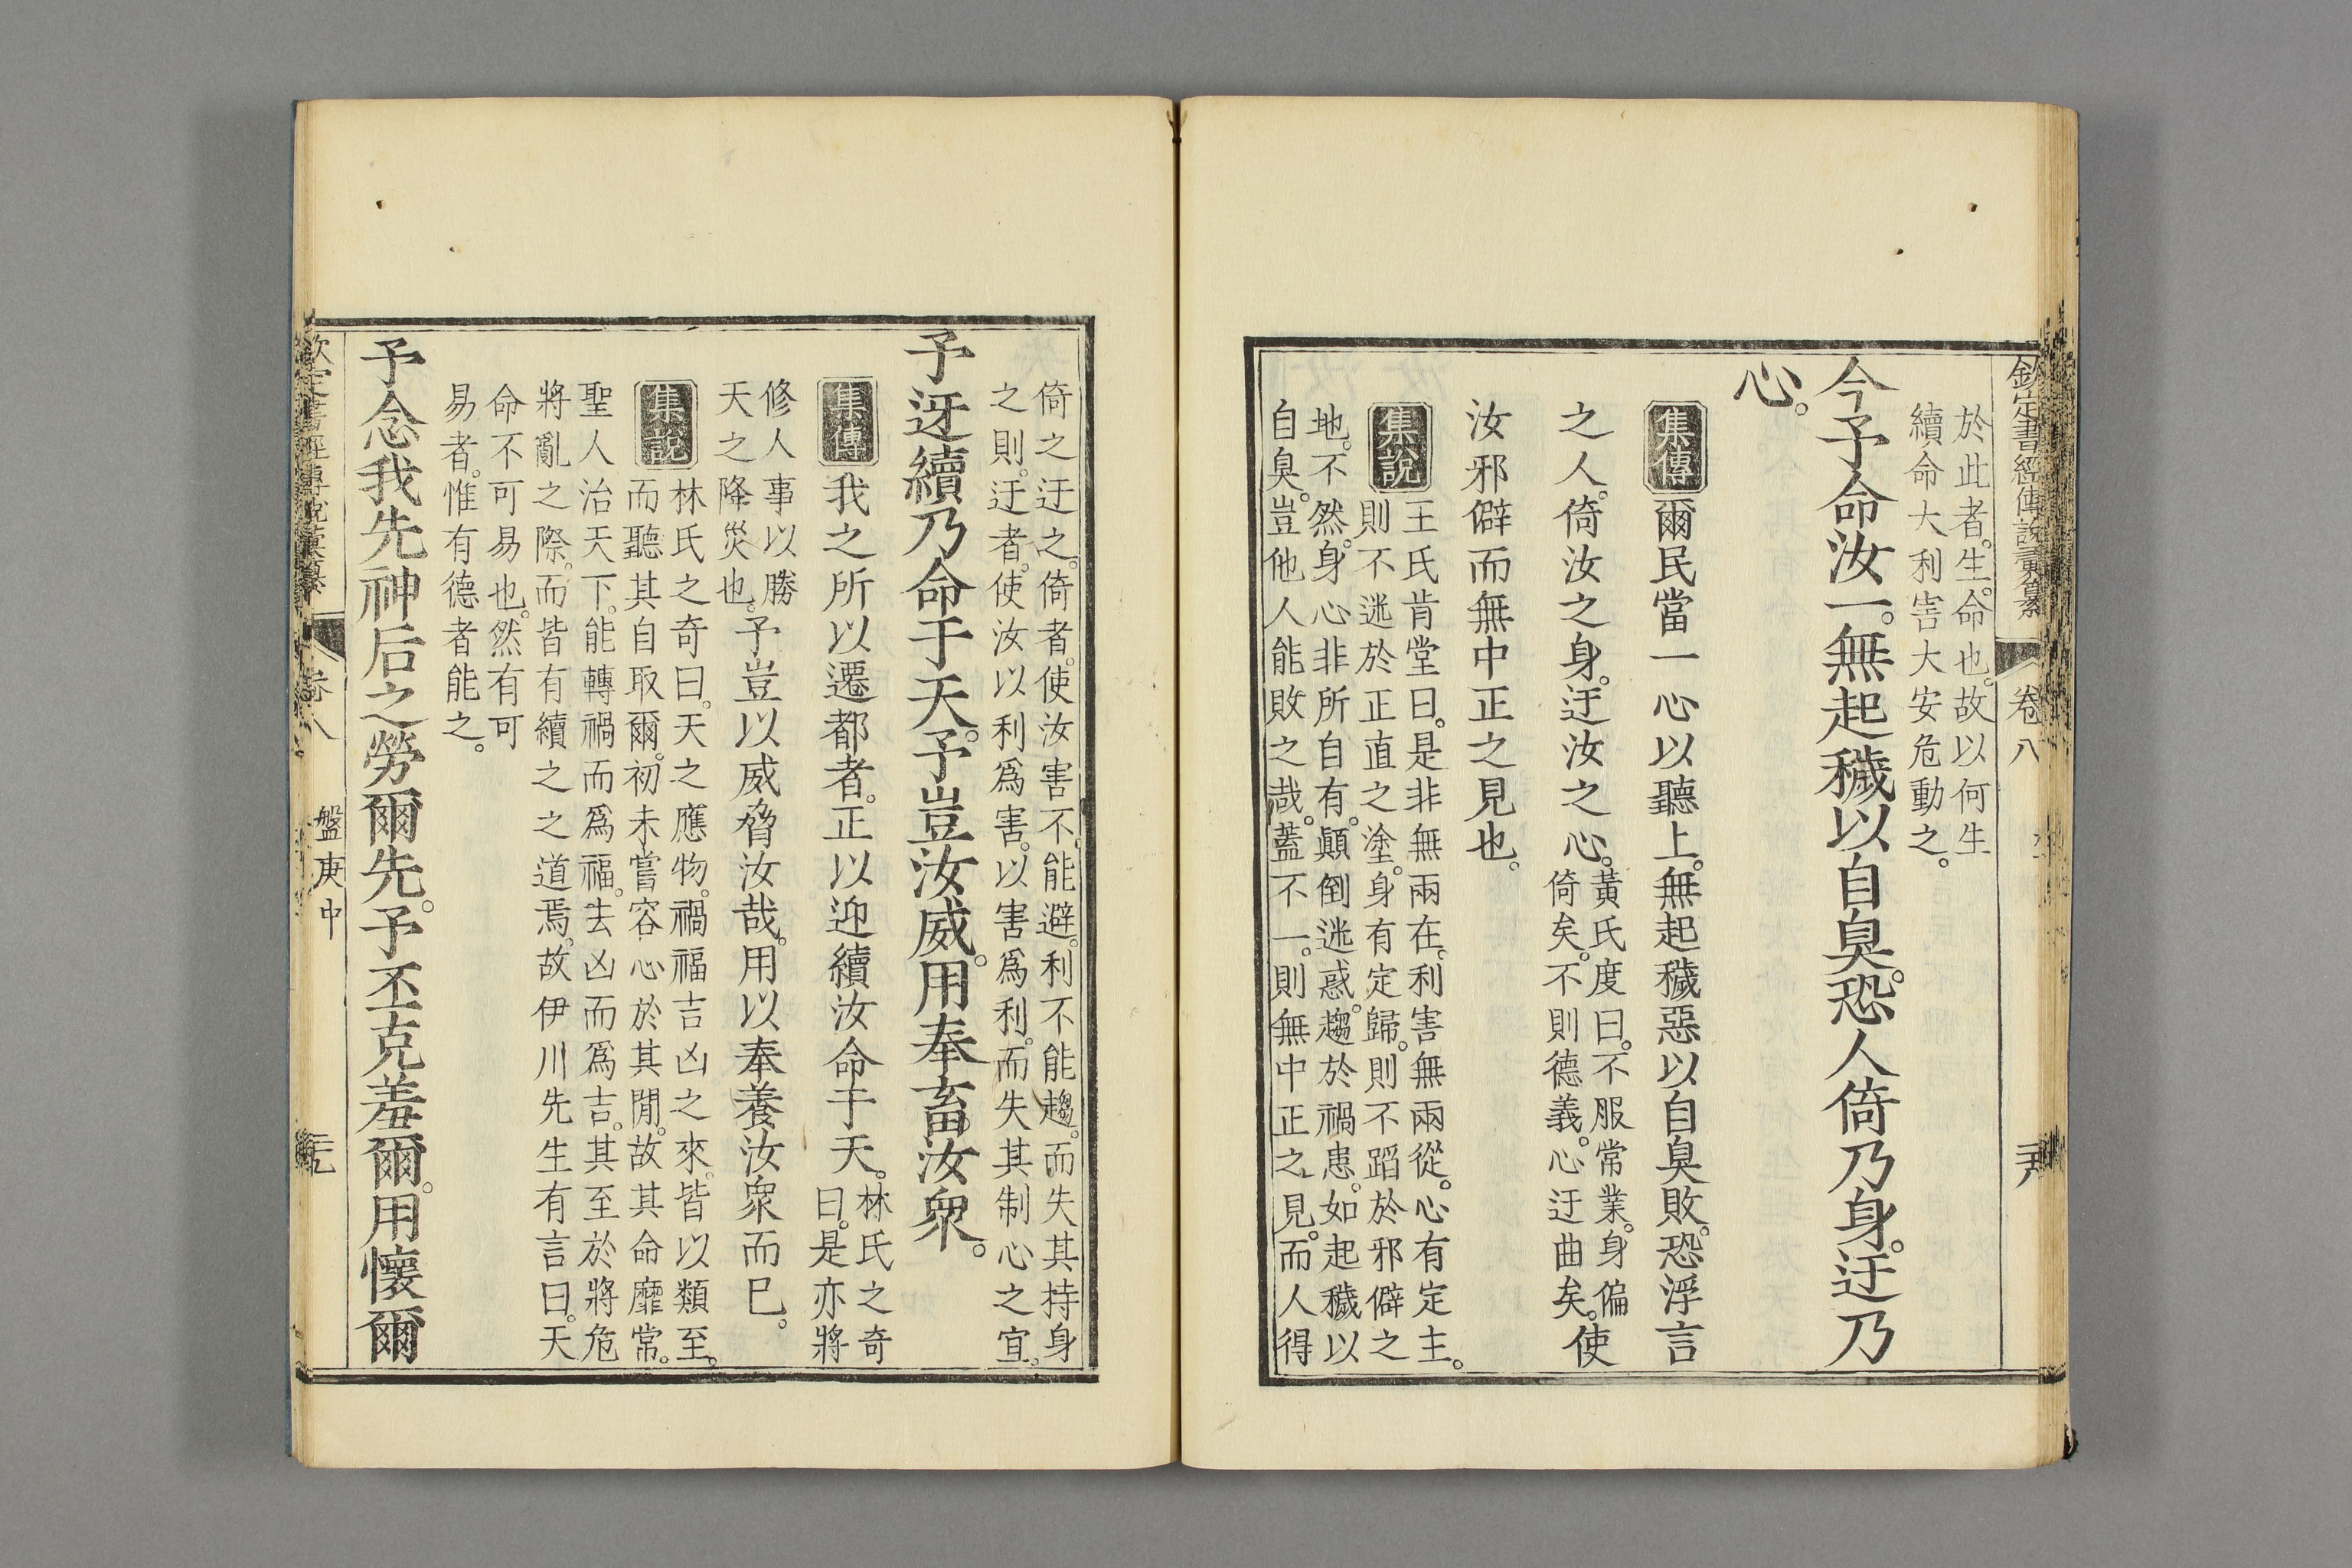 欽定書經傳說彙纂　卷八
於此者。生。命也。故以何生
續命大利害大安危動之。
今予命汝一。無起穢以自臭。恐人倚乃身。迂乃
心。
集傳　爾民當一心以聽上。無起穢惡以自臭敗。恐浮言
之人。倚汝之身。迂汝之心。
黃氏度曰。不服常業。身偏
倚矣。不則德義。心迂曲矣。
使
汝邪僻而無中正之見也。
集說
王氏肯堂曰。是非無兩在。利害無兩從。心有定主。
則不迷於正直之塗。身有定歸。則不蹈於邪僻之
地。不然。身心非所自有。顚倒迷惑。趨於禍患。如起穢以
自臭。豈他人能敗之哉。蓋不一。則無中正之見。而人得
倚之迂之。倚者。使汝害不能避。利不能趨。而失其持身
之則。迂者。使汝以利爲害。以害爲利。而失其制心之宜。
予迓續乃命于天。予豈汝威。用奉畜汝衆。
集傳　我之所以遷都者。正以迎續汝命于天。
林氏之奇
曰。是亦將
修人事以勝
天之降災也。
予豈以威脅汝哉。用以奉養汝衆而已。
集說
林氏之奇曰。天之應物。禍福吉凶之來。皆以類至。
而聽其自取爾。初未嘗容心於其閒。故其命靡常。
聖人治天下。能轉禍而爲福。去凶而爲吉。其至於將危
將亂之際。而皆有續之之道焉。故伊川先生有言曰。天
命不可易也。然有可
易者。惟有德者能之。
予念我先神后之勞爾先。予丕克羞爾。用懷爾
欽定書經傳說彙纂　卷八　盤庚中　三九